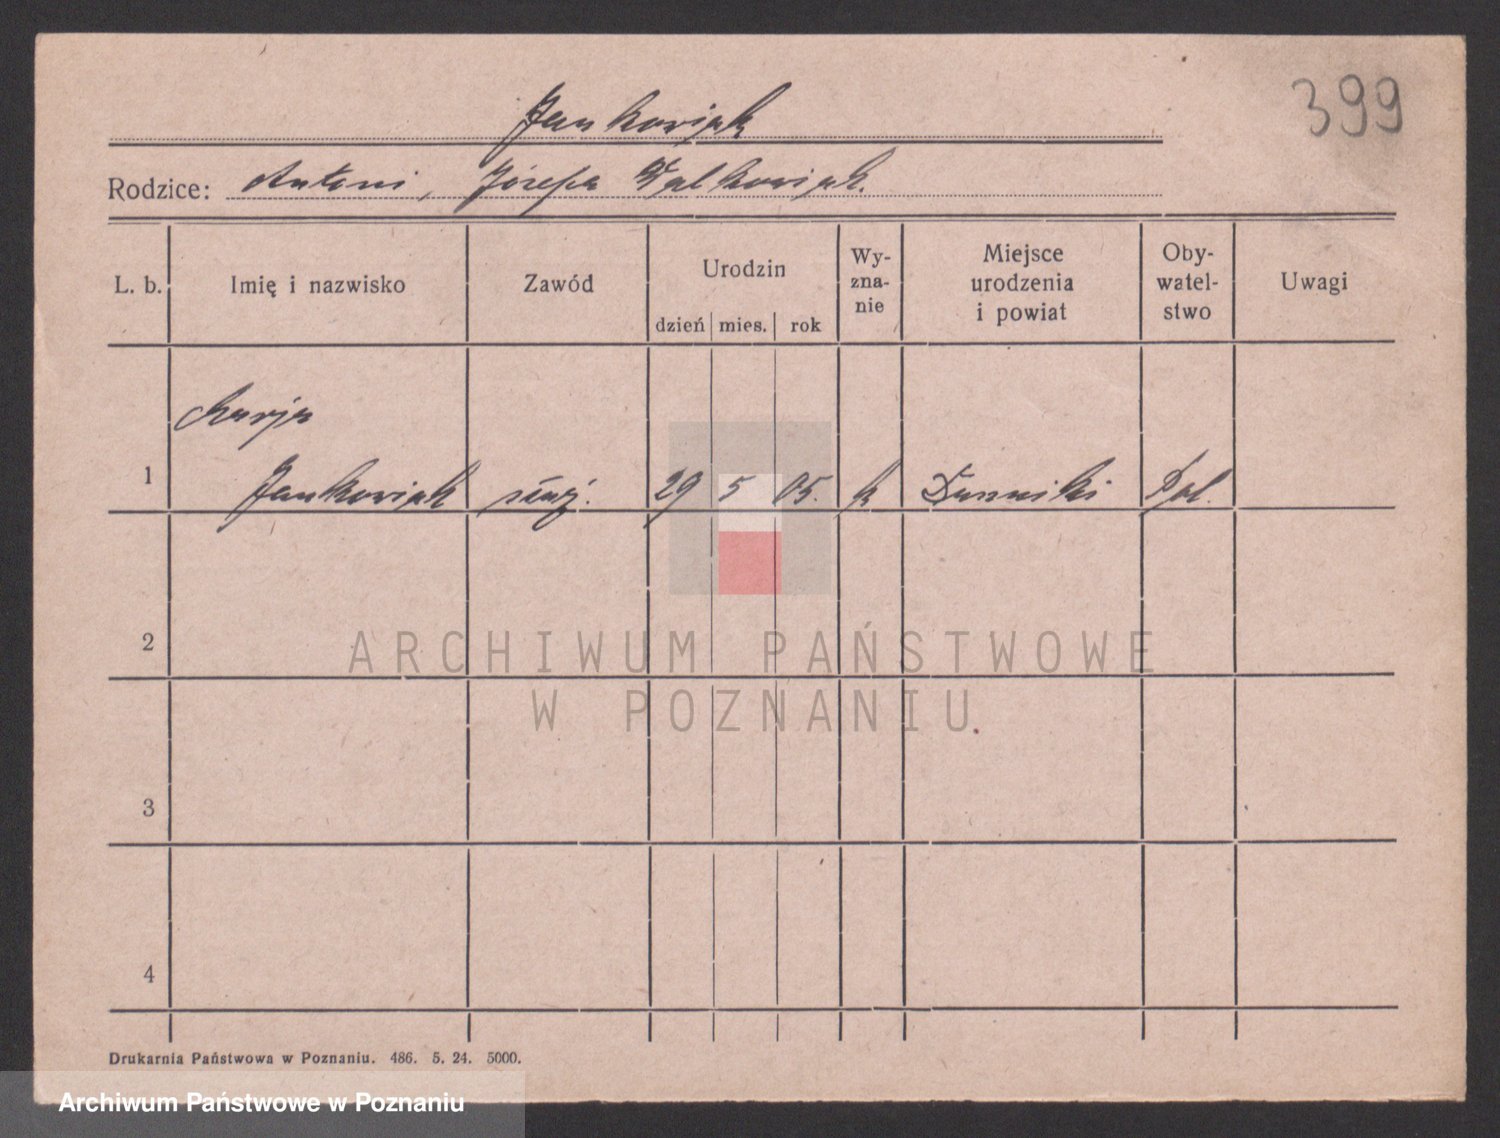 399
Jankowiak
Rodzice: Antoni, Józefa Walkowiak.
L. b. Imię i nazwisko Zawód Urodzin Wyznanie Miejsce urodzenia i powiat Obywatelstwo Uwagi
dzień mies. rok
Marja
1 Jankowiak służ. 29 5 05. k Duszniki Pol.
2
ARCHIWUM PAŃSTWOWE
W POZNANIU
3
4
Drukarnia Państwowa w Poznaniu. 486. 5. 24. 5000.
Archiwum Państwowe w Poznaniu